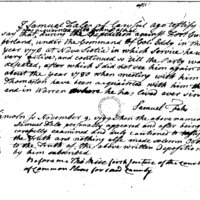 I Samuel Fales of Lawful age testify
say that during the Expedition against Fort Cum
berland, under the Command of Col. Eddy in the
year 1776 at Nova Scotia in which Service he was
very active, and continued so till the Party was
defeated, after which I did not see him again till
about the year 1780 when meeting with him
Thomaston have been acquainted with him the
and in Warren where he has lived ever since
Samuel Fales
Lincoln ss November 9, 1790 then the above named
Samuel Fales personally appeared and after being
carefully examined and duly cautioned to testify
the Truth and nothing else made solemn Oath
to the Truth of the above written Deposition
by him subscribed.
Before me Justice of the court
of common Pleas for said County